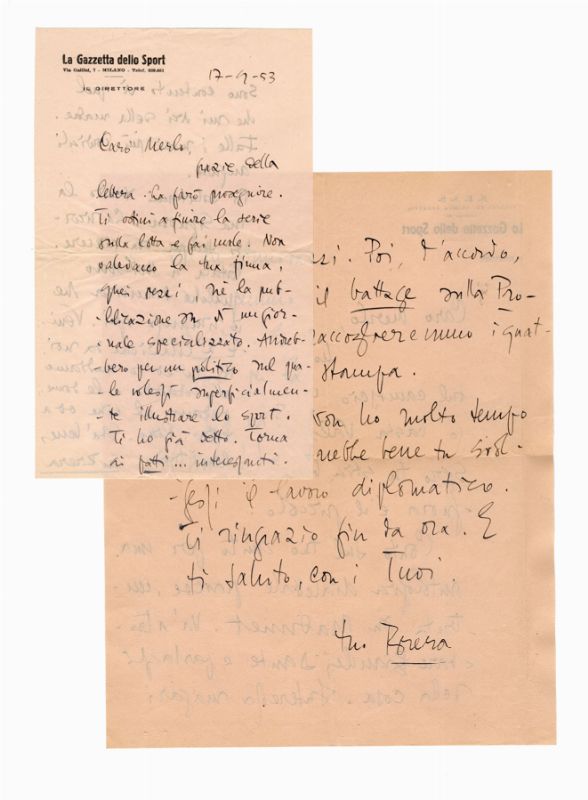 La Gazzetta dello Sport
Via Galilei, 7 - MILANO - Telef.
IL DIRETTORE
17-9-53
Caro Merlo,
grazie della
lettera. La farò proseguire.
Ti ostini a finire la serie
sulla lotta e fai male. Non
valevano la tua firma,
quei pezzi. Né la pub-
blicazione su d'un gior-
nale specializzato. Andreb-
bero per un politico sul qua-
le volessi superficialmen-
te illustrare lo sport.
Ti ho già detto. Torna
ai fatti... interessanti.
Poi, d'accordo,
il battage sulla Pro-
i quat-
Stampa.
non ho molto tempo
rebbe bene tu svol-
gessi il lavoro diplomatico.
Ti ringrazio fin da ora. E
ti saluto, con i Tuoi.
tuo Brera